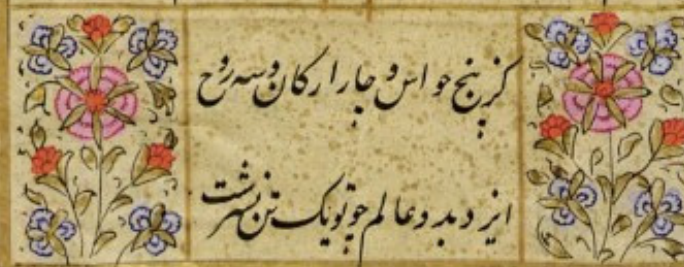 کز پنج حواس و چار ارکان و سه روح
ایزد بدو عالم چو تو یک تن نسرشت